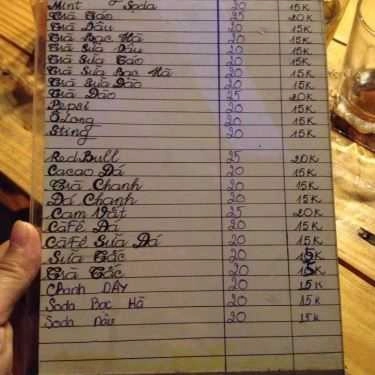 Mint Soda 20 15K
Trà Táo 25 20K
Trà Dâu 20 15K
Trà Bạc Hà 20 15K
Trà Sữa Dâu 20 15K
Trà Sữa Táo 20 15K
Trà Sữa Bạc Hà 20 15K
Trà Sữa Đào 20 15K
Trà Đào 25 20K
Pepsi 20 15K
Ôlong 20 15K
Sting 20 15K
RedBull 25 20K
Cacao Đá 20 15K
Trà Chanh 20 15K
Đá Chanh 20 15K
Cam Vắt 25 20K
Café Đá 20 15K
Café Sữa Đá 20 15K
Sữa Tắc 20
Trà Tắc 20
Chanh DÂY 20 15K
Soda Bạc Hà 20 15K
Soda Dâu 20 15K